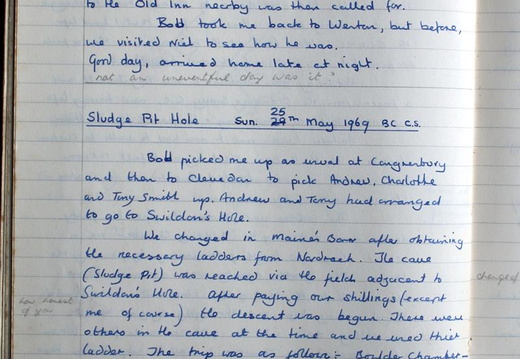 to the Old Inn nearby was then called for.
Bob took me back to Weston, but before,
we visited Niel to see how he was.
Good day, arrived home late at night.
not an uneventful day was it?
Sludge Pit Hole Sun. 25 29th May 1969 BC C.S.
Bob picked me up as usual at Congresbury
and then to Clevedon to pick Andrew, Charlotte
and Tony Smith up. Andrew and Tony had arranged
to go to Swildon's Hole.
We changed in Maine's Barn after obtaining
the necessary ladders from Nordrach. The cave
(Sludge Pit) was reached via the field adjacent to
Swildon's Hole. After paying our shillings (except
me of course) the descent was begun. There were
how honest
of you
others in the cave at the time and we used their
ladder. The trip was as follows: Boulder Chamber-